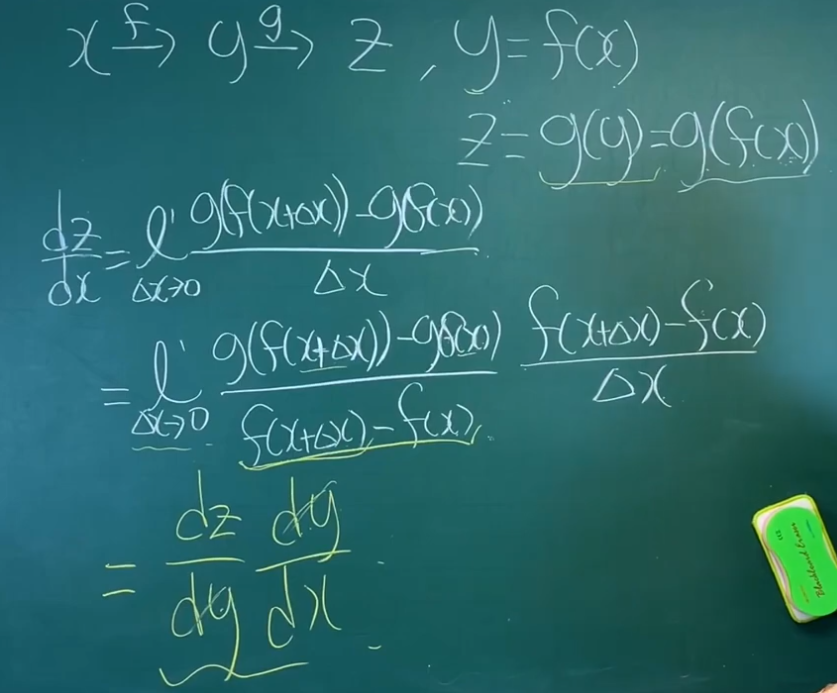 x \xrightarrow{f} y \xrightarrow{g} z , y = f(x)
z = g(y) = g(f(x))
\frac{dz}{dx} = \ell^{'}_{\Delta x \to 0} \frac{g(f(x+\Delta x)) - g(f(x))}{\Delta x}
= \ell^{'}_{\Delta x \to 0} \frac{g(f(x+\Delta x)) - g(f(x))}{f(x+\Delta x) - f(x)} \frac{f(x+\Delta x) - f(x)}{\Delta x}
= \frac{dz}{dy} \frac{dy}{dx}
Blackboard Eraser